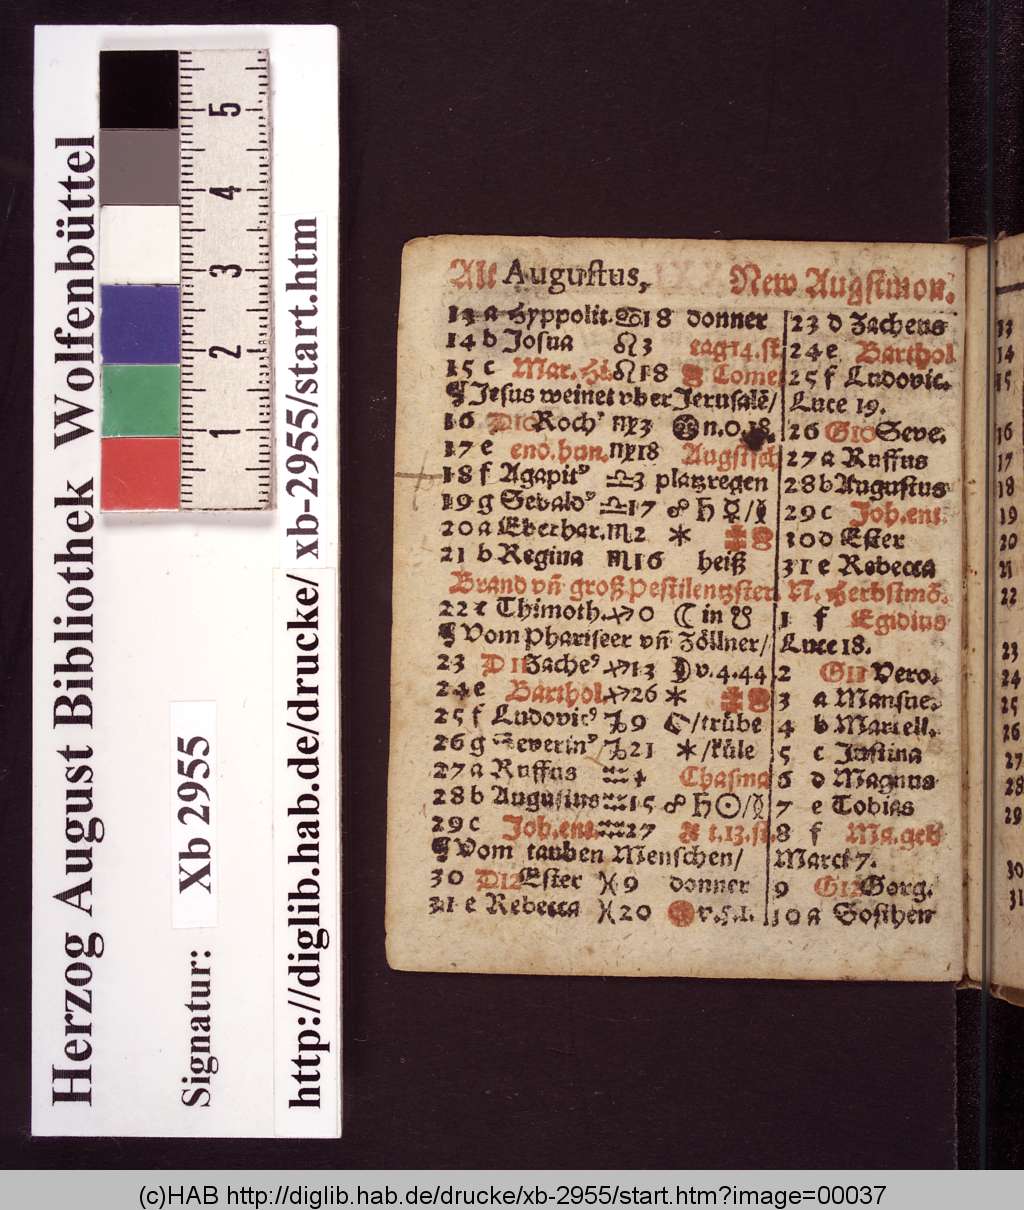 Herzog August Bibliothek Wolfenbüttel
Signatur: Xb 2955
http://diglib.hab.de/drucke/xb-2955/start.htm
1 2 3 4 5
Alt Augustus, New Augstmon.
13 a Hyppolit. ♋18 donner 23 d Zacheus
14 b Josua ♌3 tag 14. st 24 e Barthol
15 c Mar. Hi. ♌18 Come 25 f Ludovic.
¶ Jesus weinet vber Jerusalē/ Luce 19.
16 D10 Roch⁹ ♍3 n.0.18. 26 G10 Seve.
17 e ♍18 Augstsch 27 a Ruffus
18 f Agapit⁹ ♎3 platzregen 28 b Augustus
19 g Sebald⁹ ♎17 ☍ ♄ ☿/ 29 c Joh. ent.
20 a Eberhar. ♏2 ✶ 30 d Ester
21 b Regina ♏16 heiß 31 e Rebecca
Brand vñ groß Pestilentzster. N. Herbstmō.
22 c Thimoth. ♐0 ☾ in ☋ 1 f Egidius
¶ Vom Phariseer vñ Zöllner/ Luce 18.
23 D11 Zache⁹ ♐13 v.4.44 2 G11 Vero.
24 e Barthol. ♐26 ✶ 3 a Mansue.
25 f Ludovic⁹ ♑9 /trübe 4 b Martell.
26 g Severin⁹ ♑21 ✶/küle 5 c Justina
27 a Ruffus ♒4 Chasma 6 d Magnus
28 b Augustus ♒15 ☍ ♄ ☉/ 7 e Tobias
29 c Joh. ent. ♒27 t.13.st. 8 f Ma. geb
¶ Vom tauben Menschen/ Marci 7.
30 D12 Ester ♓9 donner 9 G12 Gorg.
31 e Rebecca ♓20 v.5.1. 10 a Sosthen
13
14
15
16
17
18
19
20
21
22
23
24
25
26
27
28
29
30
31
(c)HAB http://diglib.hab.de/drucke/xb-2955/start.htm?image=00037